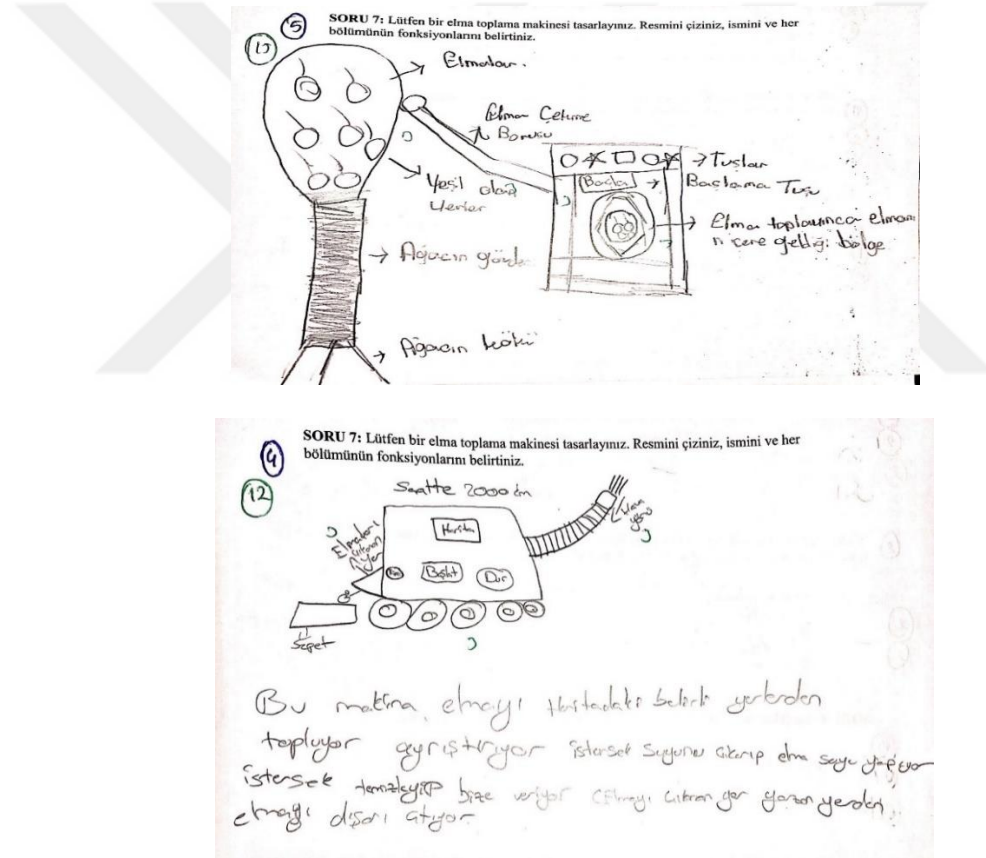 5
SORU 7: Lütfen bir elma toplama makinesi tasarlayınız. Resmini çiziniz, ismini ve her
bölümünün fonksiyonlarını belirtiniz.
Elmalar.
Elma Çekme
Borusu
Tuşlar
Başla
Başlama Tuşu
Yeşil olan
Yerler
Elma toplayınca elman
ın içere geldiği bölge
Ağacın
Ağacın kökü
4
SORU 7: Lütfen bir elma toplama makinesi tasarlayınız. Resmini çiziniz, ismini ve her
bölümünün fonksiyonlarını belirtiniz.
12
Saatte 2000
Harita
Elmaları
yer
Başlat
Dur
Sepet
Bu makina elmayı Haritadaki belirli yerlerden
topluyor ayrıştırıyor istersek suyunu çıkarıp elma suyu yapıyor
istersek temizleyip bize veriyor yer yazan yerden
elmayı dışarı atıyor